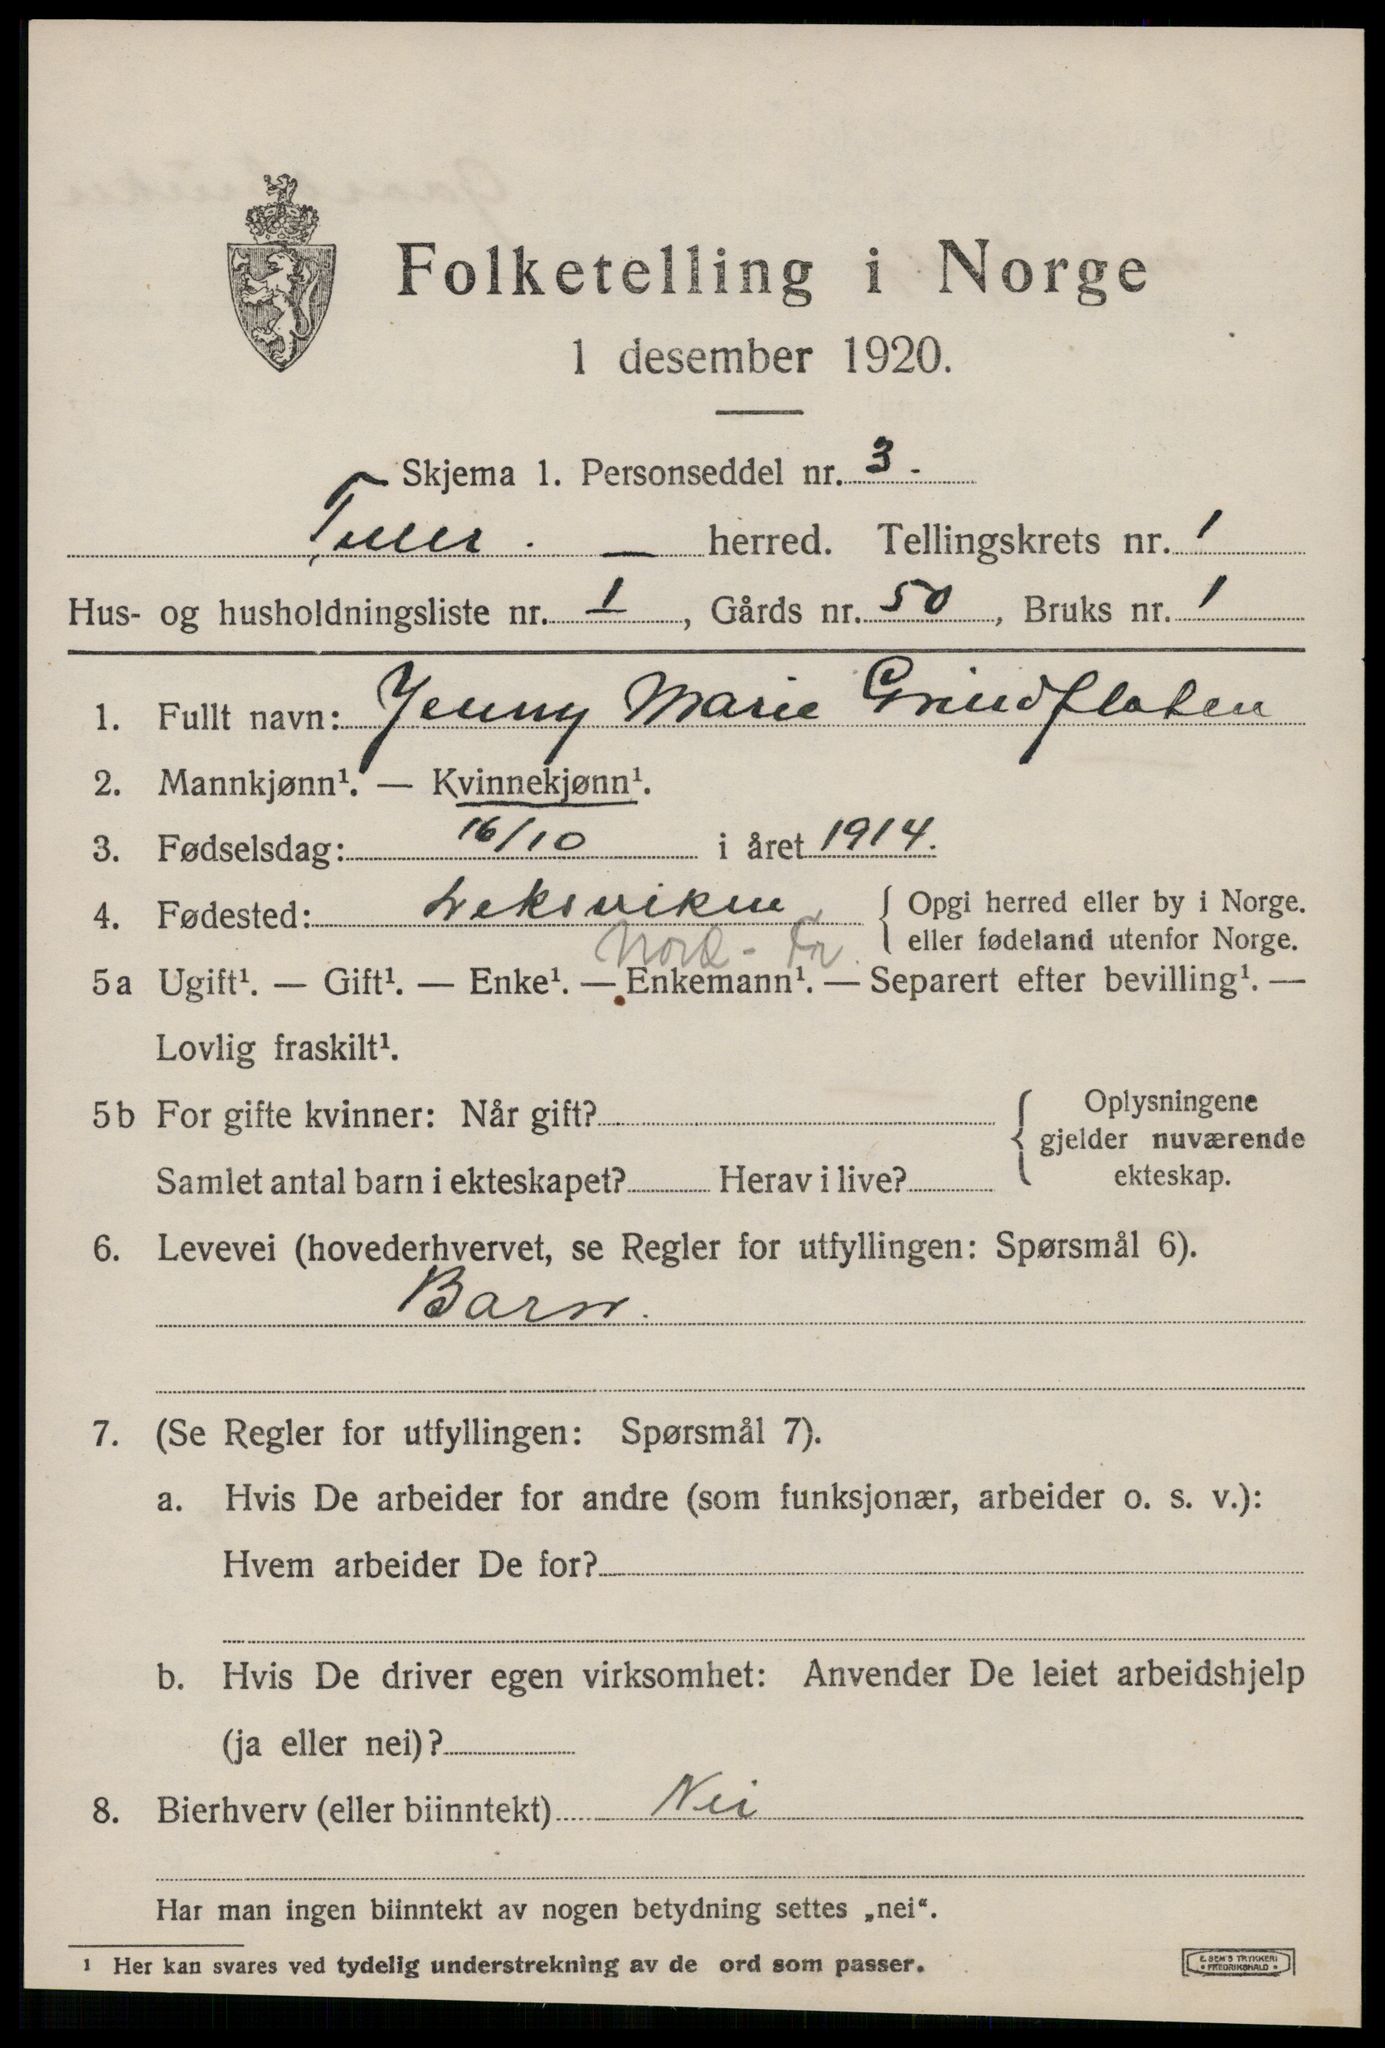 Folketelling i Norge
1 desember 1920.
Skjema 1. Personseddel nr. 3.
Tiller. — herred. Tellingskrets nr. 1
Hus- og husholdningsliste nr. 1, Gårds nr. 50, Bruks nr. 1
1. Fullt navn: Jenny Marie Grindflaten
2. Mannkjønn¹. — Kvinnekjønn¹.
3. Fødselsdag: 16/10 i året 1914.
4. Fødested: Leksviken { Opgi herred eller by i Norge.
Nord-Tr. eller fødeland utenfor Norge.
5a Ugift¹. — Gift¹. — Enke¹. — Enkemann¹. — Separert efter bevilling¹. —
Lovlig fraskilt¹.
5b For gifte kvinner: Når gift? { Oplysningene
gjelder nuværende
Samlet antal barn i ekteskapet? Herav i live? ekteskap.
6. Levevei (hovederhvervet, se Regler for utfyllingen: Spørsmål 6).
Barn.
7. (Se Regler for utfyllingen: Spørsmål 7).
a. Hvis De arbeider for andre (som funksjonær, arbeider o. s. v.):
Hvem arbeider De for?
b. Hvis De driver egen virksomhet: Anvender De leiet arbeidshjelp
(ja eller nei)?
8. Bierhverv (eller biinntekt) Nei
Har man ingen biinntekt av nogen betydning settes „nei“.
¹ Her kan svares ved tydelig understrekning av de ord som passer.
E. SEM'S TRYKKERI
• FREDRIKSHALD •